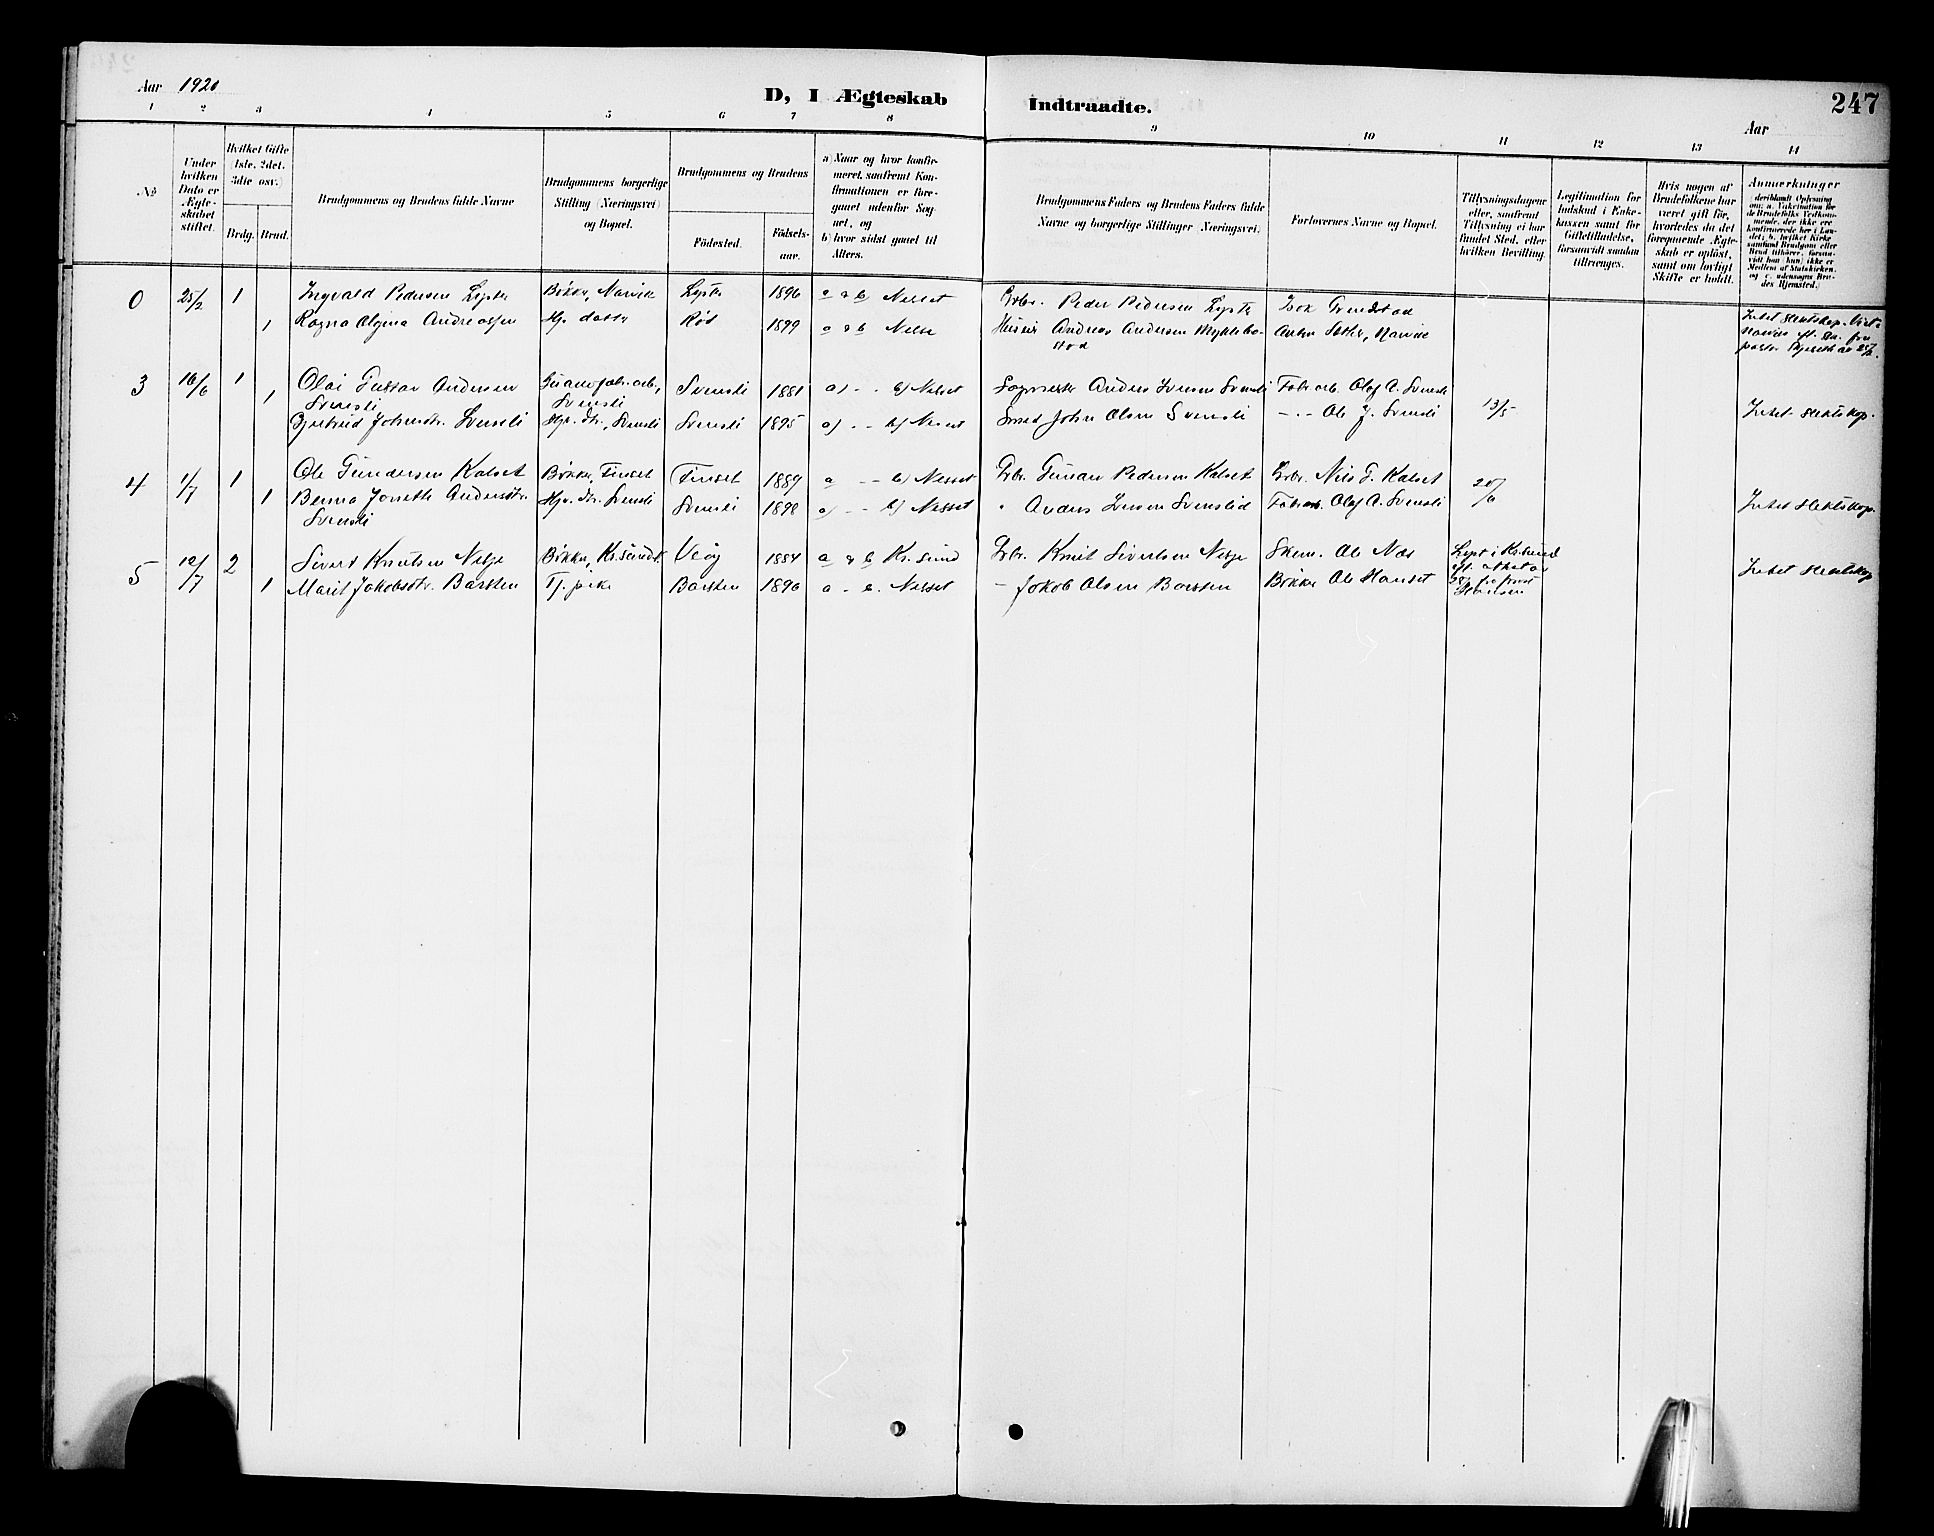 Aar 1920
D, I Ægteskab Indtraadte.
247
Aar
1 2 3 4 5 6 7 8 9 10 11 12 13 14
No
Under hvilken Dato er Ægteskabet stiftet.
Hvilket Gifte (1ste, 2det, 3die osv.)
Brdg. Brud.
Brudgommens og Brudens fulde Navne
Brudgommens borgerlige Stilling (Næringsvei) og Bopæl.
Brudgommens og Brudens
Födested.
Födselsaar.
a) Naar og hvor konfirmeret, saafremt Konfirmationen er foregaaet udenfor Sognet, og
b) hvor sidst gaaet til Alters.
Brudgommens Faders og Brudens Faders fulde Navne og borgerlige Stillinger Næringsvei.
Forlovernes Navne og Bopæl.
Tillysningsdagene eller, saafremt Tillysning ei har fundet Sted, efter hvilken Bevilling.
Legitimation for Indskud i Enkekassen samt for Giftetilladelse, forsaavidt saadan tiltrænges.
Hvis nogen af Brudefolkene har været gift før, hvorledes da det foregaaende Ægteskab er opløst, samt om lovligt Skifte er holdt.
Anmærkninger
0 25/2 1 Ingvald Pedersen Lyste Bökker, Narvik Lyste 1896 a & b Nesset Gbr. Peder Pedersen Lyste
1 Ragna Olgina Andreassen Hp. datter Röd 1899 a & b Husm. Andreas Andersen Myklebostad Narvik
Intet Slektskap.
3 16/6 1 Olai Gustav Andersen Svensli Guanofabr. arb., Svensli Svensli 1881 a) - - b) Nesset Anders Iversen Svensli Fabr. arb. Olaf A. Svensli
1 Gjertrud Johnsdtr. Svensli Hp. dtr., Svensli Svensli 1895 a) - - b) Nesset Smed John Olsen Svensli - - Ole J. Svensli 13/5 Intet Slektskap.
4 1/7 1 Ole Gundersen Kalset Bökker, Tinset Tinset 1889 a - - b) Nesset Gbr. Gunnar Pedersen Kalset Gbr. Nils G. Kalset
1 Berna Jonette Andersdtr. Svensli Hp. dtr. Svensli Svensli 1898 a) - - b) Nesset " Anders Iversen Svenslid Fabr. arb. Olaf A. Svensli Intet Slektskap.
5 12/7 2 Sivert Knutsen Nebje Bökker, Kr.sund. Veöy 1884 a & b Kr. sund Gbr. Knut Sivertsen Nebje Ole Næs Lyst i Kr.sund
1 Marit Jakobsdtr. Barsten Tj. pike Barsten 1896 a - b. Nesset - Jakob Olsen Barsten Bökker Ole Hanset Intet Slektskap